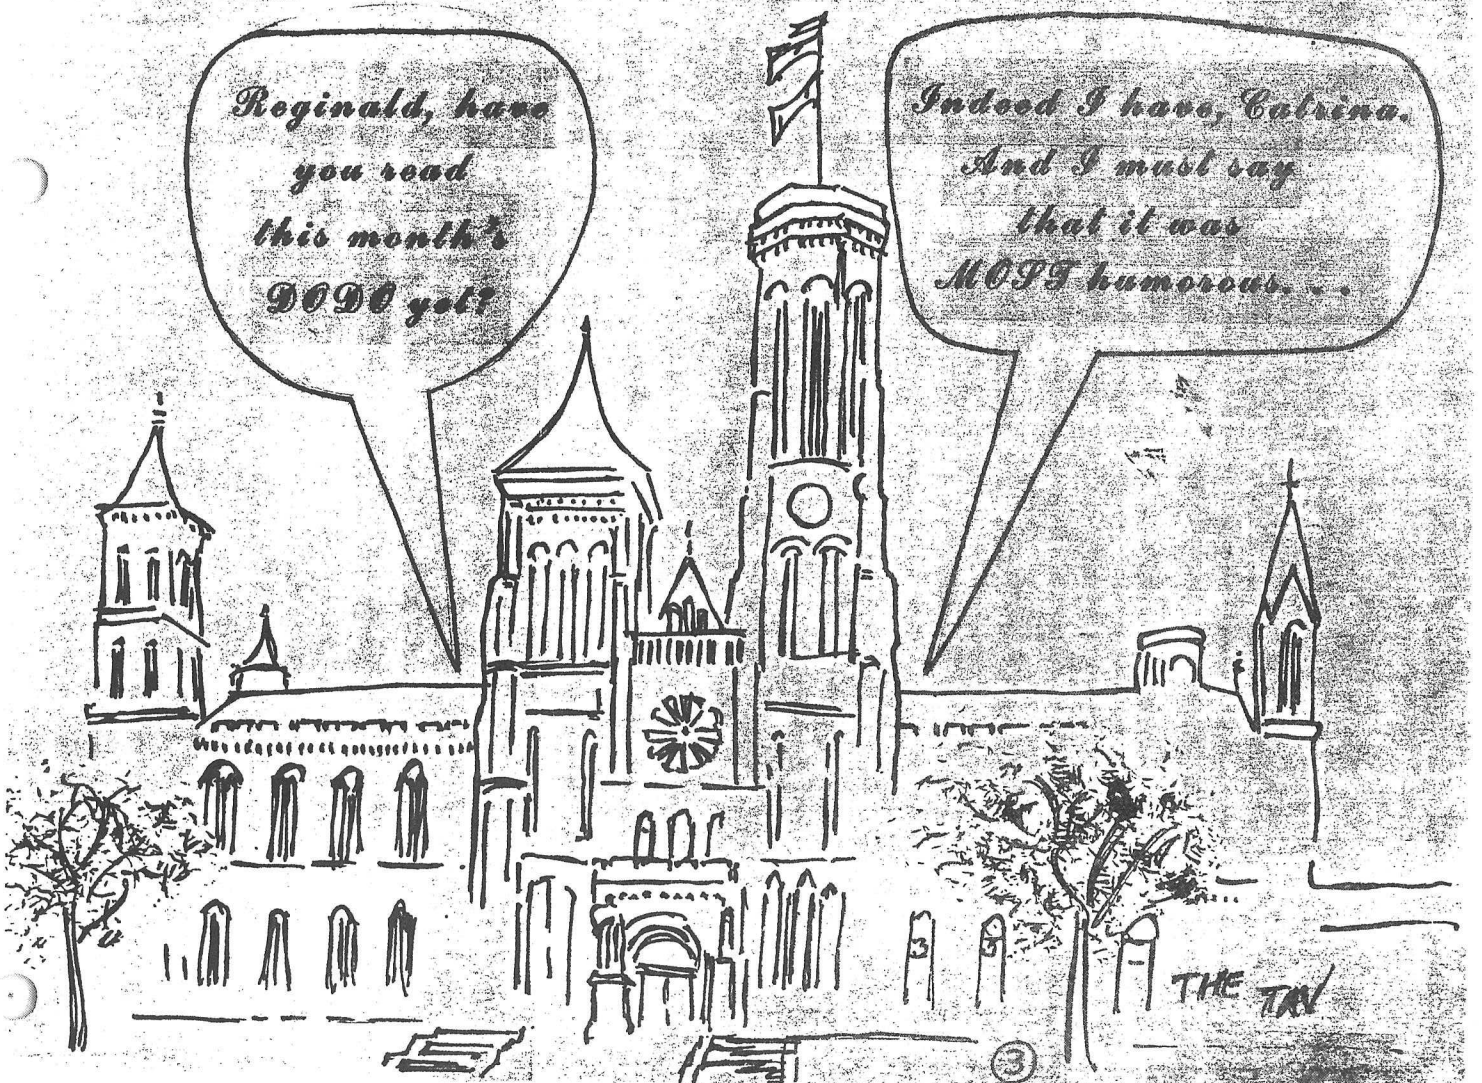 Reginald, have
you read
this month's
DODO yet?
Indeed I have, Catrina.
And I must say
that it was
MOST humorous. . .
3 3
THE TAV
3